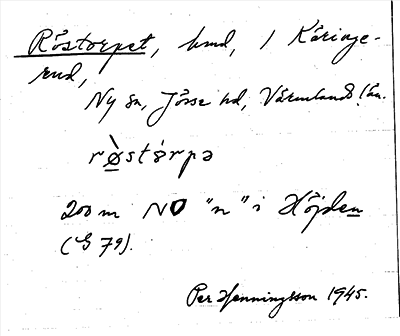 Röstorpet, hmd, / Käringe-
rud,
Ny sn, Jösse hd, Värmlands län.
rø̀stɵrpə
200 m NO "n" i Höjden
(G 79).
Per Henningsson 1945.